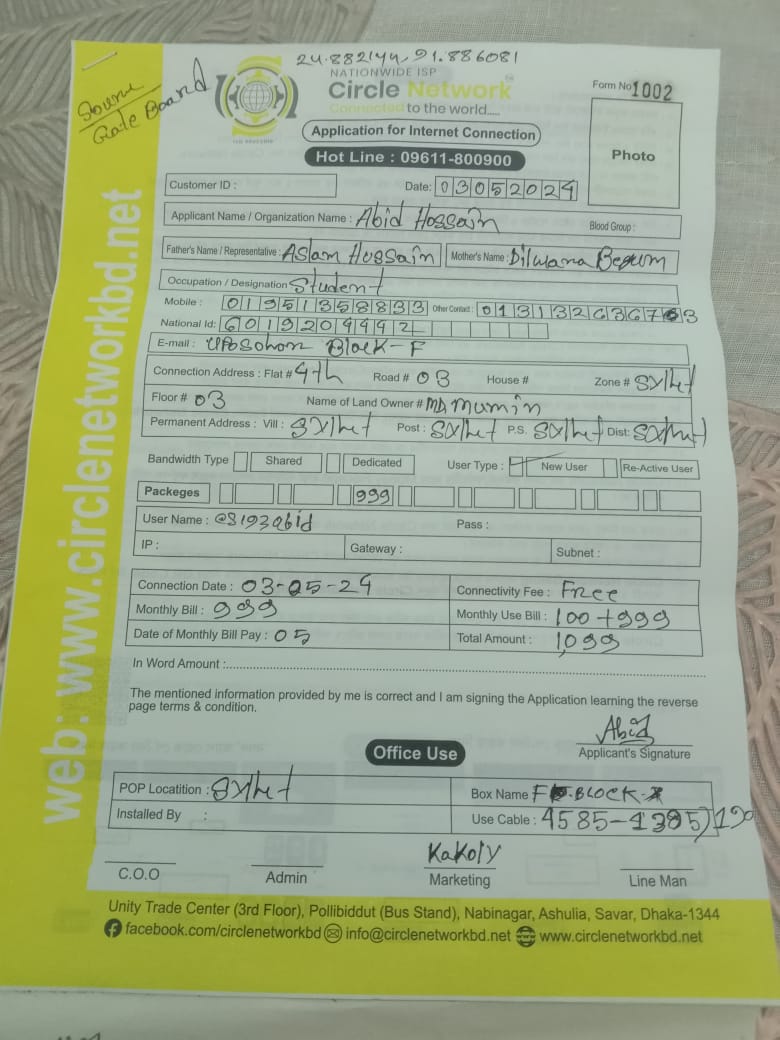 24.882144, 91.886081
NATIONWIDE ISP
Circle Network
Connected to the world.....
Source
Gate Board
Form No 1002
Application for Internet Connection
Hot Line : 09611-800900
Photo
Customer ID :
Date: 03052024
Applicant Name / Organization Name : Abid Hossain
Blood Group :
Father's Name / Representative : Aslam Hossain Mother's Name : Dilwana Begum
Occupation / Designation Student
Mobile : 01951358833 Other Contact :
National Id: 6019209992
E-mail : Uposohon Block-F
Connection Address : Flat # 4th Road # 03 House # Zone # Sylhet
Floor # 03 Name of Land Owner # MD Mumin
Permanent Address : Vill : Sylhet Post : Sylhet P.S. Sylhet Dist: Sylhet
Bandwidth Type Shared Dedicated User Type : New User Re-Active User
Packeges 999
User Name : @S193abid Pass :
IP : Gateway : Subnet :
Connection Date : 03-05-24 Connectivity Fee : Free
Monthly Bill : 999 Monthly Use Bill : 100+999
Date of Monthly Bill Pay : 05 Total Amount : 1,099
In Word Amount :
The mentioned information provided by me is correct and I am signing the Application learning the reverse
page terms & condition.
Abid
Applicant's Signature
Office Use
POP Locatition : Sylhet Box Name F BLOCK
Installed By : Use Cable : 4585-
Kakoly
C.O.O Admin Marketing Line Man
Unity Trade Center (3rd Floor), Pollibiddut (Bus Stand), Nabinagar, Ashulia, Savar, Dhaka-1344
facebook.com/circlenetworkbd info@circlenetworkbd.net www.circlenetworkbd.net
web: www.circlenetworkbd.net